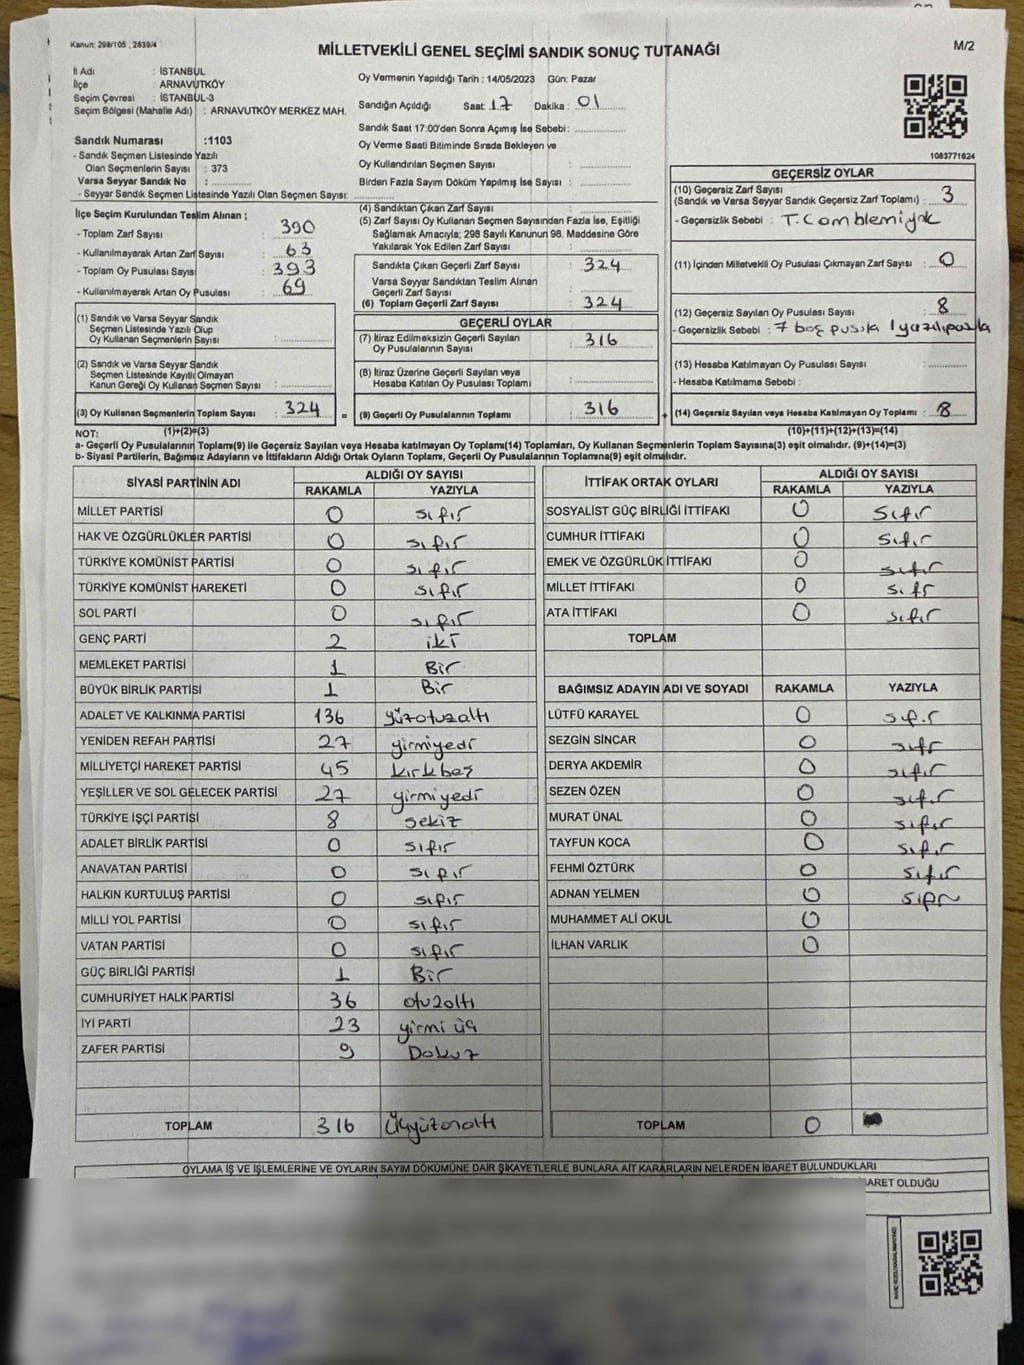 Kanun: 298/105 , 2839/4
MİLLETVEKİLİ GENEL SEÇİMİ SANDIK SONUÇ TUTANAĞI
M/2
İl Adı : İSTANBUL
İlçe : ARNAVUTKÖY
Seçim Çevresi : İSTANBUL-3
Seçim Bölgesi (Mahalle Adı) : ARNAVUTKÖY MERKEZ MAH.
Sandık Numarası :1103
- Sandık Seçmen Listesinde Yazılı
Olan Seçmenlerin Sayısı : 373
Varsa Seyyar Sandık No :
- Seyyar Sandık Seçmen Listesinde Yazılı Olan Seçmen Sayısı:
Oy Vermenin Yapıldığı Tarih : 14/05/2023 Gün: Pazar
Sandığın Açıldığı Saat: 17 Dakika : 01
Sandık Saat 17:00'den Sonra Açımış İse Sebebi :
Oy Verme Saati Bitiminde Sırada Bekleyen ve
Oy Kullandırılan Seçmen Sayısı :
Birden Fazla Sayım Döküm Yapılmış İse Sayısı :
1083771624
İlçe Seçim Kurulundan Teslim Alınan ;
- Toplam Zarf Sayısı : 390
- Kullanılmayarak Artan Zarf Sayısı : 63
- Toplam Oy Pusulası Sayısı : 393
- Kullanılmayarak Artan Oy Pusulası : 69
(1) Sandık ve Varsa Seyyar Sandık
Seçmen Listesinde Yazılı Olup
Oy Kullanan Seçmenlerin Sayısı :
(2) Sandık ve Varsa Seyyar Sandık
Seçmen Listesinde Kayıtlı Olmayan
Kanun Gereği Oy Kullanan Seçmen Sayısı :
(3) Oy Kullanan Seçmenlerin Toplam Sayısı : 324 =
(1)+(2)=(3)
(4) Sandıktan Çıkan Zarf Sayısı :
(5) Zarf Sayısı Oy Kullanan Seçmen Sayısından Fazla İse, Eşitliği
Sağlamak Amacıyla; 298 Sayılı Kanunun 98. Maddesine Göre
Yakılarak Yok Edilen Zarf Sayısı :
Sandıkta Çıkan Geçerli Zarf Sayısı : 324
Varsa Seyyar Sandıktan Teslim Alınan
Geçerli Zarf Sayısı :
(6) Toplam Geçerli Zarf Sayısı : 324
GEÇERLİ OYLAR
(7) İtiraz Edilmeksizin Geçerli Sayılan
Oy Pusulalarının Sayısı : 316
(8) İtiraz Üzerine Geçerli Sayılan veya
Hesaba Katılan Oy Pusulası Toplamı :
(9) Geçerli Oy Pusulalarının Toplamı : 316 +
GEÇERSİZ OYLAR
(10) Geçersiz Zarf Sayısı
(Sandık ve Varsa Seyyar Sandık Geçersiz Zarf Toplamı) : 3
- Geçersizlik Sebebi : T.Comblemi yok
(11) İçinden Milletvekili Oy Pusulası Çıkmayan Zarf Sayısı : 0
(12) Geçersiz Sayılan Oy Pusulası Sayısı : 8
- Geçersizlik Sebebi : 7 boş pusıla 1 yazılıpusıla
(13) Hesaba Katılmayan Oy Pusulası Sayısı :
- Hesaba Katılmama Sebebi :
(14) Geçersiz Sayılan veya Hesaba Katılmayan Oy Toplamı : 8
(10)+(11)+(12)+(13)=(14)
NOT:
a- Geçerli Oy Pusulalarının Toplamı(9) ile Geçersiz Sayılan veya Hesaba katılmayan Oy Toplamı(14) Toplamları, Oy Kullanan Seçmenlerin Toplam Sayısına(3) eşit olmalıdır. (9)+(14)=(3)
b- Siyasi Partilerin, Bağımsız Adayların ve İttifakların Aldığı Ortak Oyların Toplamı, Geçerli Oy Pusulalarının Toplamına(9) eşit olmalıdır.
SİYASİ PARTİNİN ADI ALDIĞI OY SAYISI
RAKAMLA YAZIYLA
MİLLET PARTİSİ 0 sıfır
HAK VE ÖZGÜRLÜKLER PARTİSİ 0 sıfır
TÜRKİYE KOMÜNİST PARTİSİ 0 sıfır
TÜRKİYE KOMÜNİST HAREKETİ 0 sıfır
SOL PARTİ 0 sıfır
GENÇ PARTİ 2 iki
MEMLEKET PARTİSİ 1 Bir
BÜYÜK BİRLİK PARTİSİ 1 Bir
ADALET VE KALKINMA PARTİSİ 136 yüzotuzaltı
YENİDEN REFAH PARTİSİ 27 yirmiyedi
MİLLİYETÇİ HAREKET PARTİSİ 45 kırkbeş
YEŞİLLER VE SOL GELECEK PARTİSİ 27 yirmiyedi
TÜRKİYE İŞÇİ PARTİSİ 8 sekiz
ADALET BİRLİK PARTİSİ 0 sıfır
ANAVATAN PARTİSİ 0 sıfır
HALKIN KURTULUŞ PARTİSİ 0 sıfır
MİLLİ YOL PARTİSİ 0 sıfır
VATAN PARTİSİ 0 sıfır
GÜÇ BİRLİĞİ PARTİSİ 1 Bir
CUMHURİYET HALK PARTİSİ 36 otuzaltı
İYİ PARTİ 23 yirmi üç
ZAFER PARTİSİ 9 Dokuz
TOPLAM 316 Üçyüzonaltı
İTTİFAK ORTAK OYLARI ALDIĞI OY SAYISI
RAKAMLA YAZIYLA
SOSYALİST GÜÇ BİRLİĞİ İTTİFAKI 0 sıfır
CUMHUR İTTİFAKI 0 sıfır
EMEK VE ÖZGÜRLÜK İTTİFAKI 0 sıfır
MİLLET İTTİFAKI 0 sıfr
ATA İTTİFAKI 0 sıfır
TOPLAM
BAĞIMSIZ ADAYIN ADI VE SOYADI RAKAMLA YAZIYLA
LÜTFÜ KARAYEL 0 sıfır
SEZGİN SİNCAR 0 sıfr
DERYA AKDEMİR 0 sıfır
SEZEN ÖZEN 0 sıfır
MURAT ÜNAL 0 sıfır
TAYFUN KOCA 0 sıfır
FEHMİ ÖZTÜRK 0 sıfır
ADNAN YELMEN 0 sıfır
MUHAMMET ALİ OKUL 0
İLHAN VARLIK 0
TOPLAM 0
OYLAMA İŞ VE İŞLEMLERİNE VE OYLARIN SAYIM DÖKÜMÜNE DAİR ŞİKAYETLERLE BUNLARA AİT KARARLARIN NELERDEN İBARET BULUNDUKLARI
ARET OLDUĞU